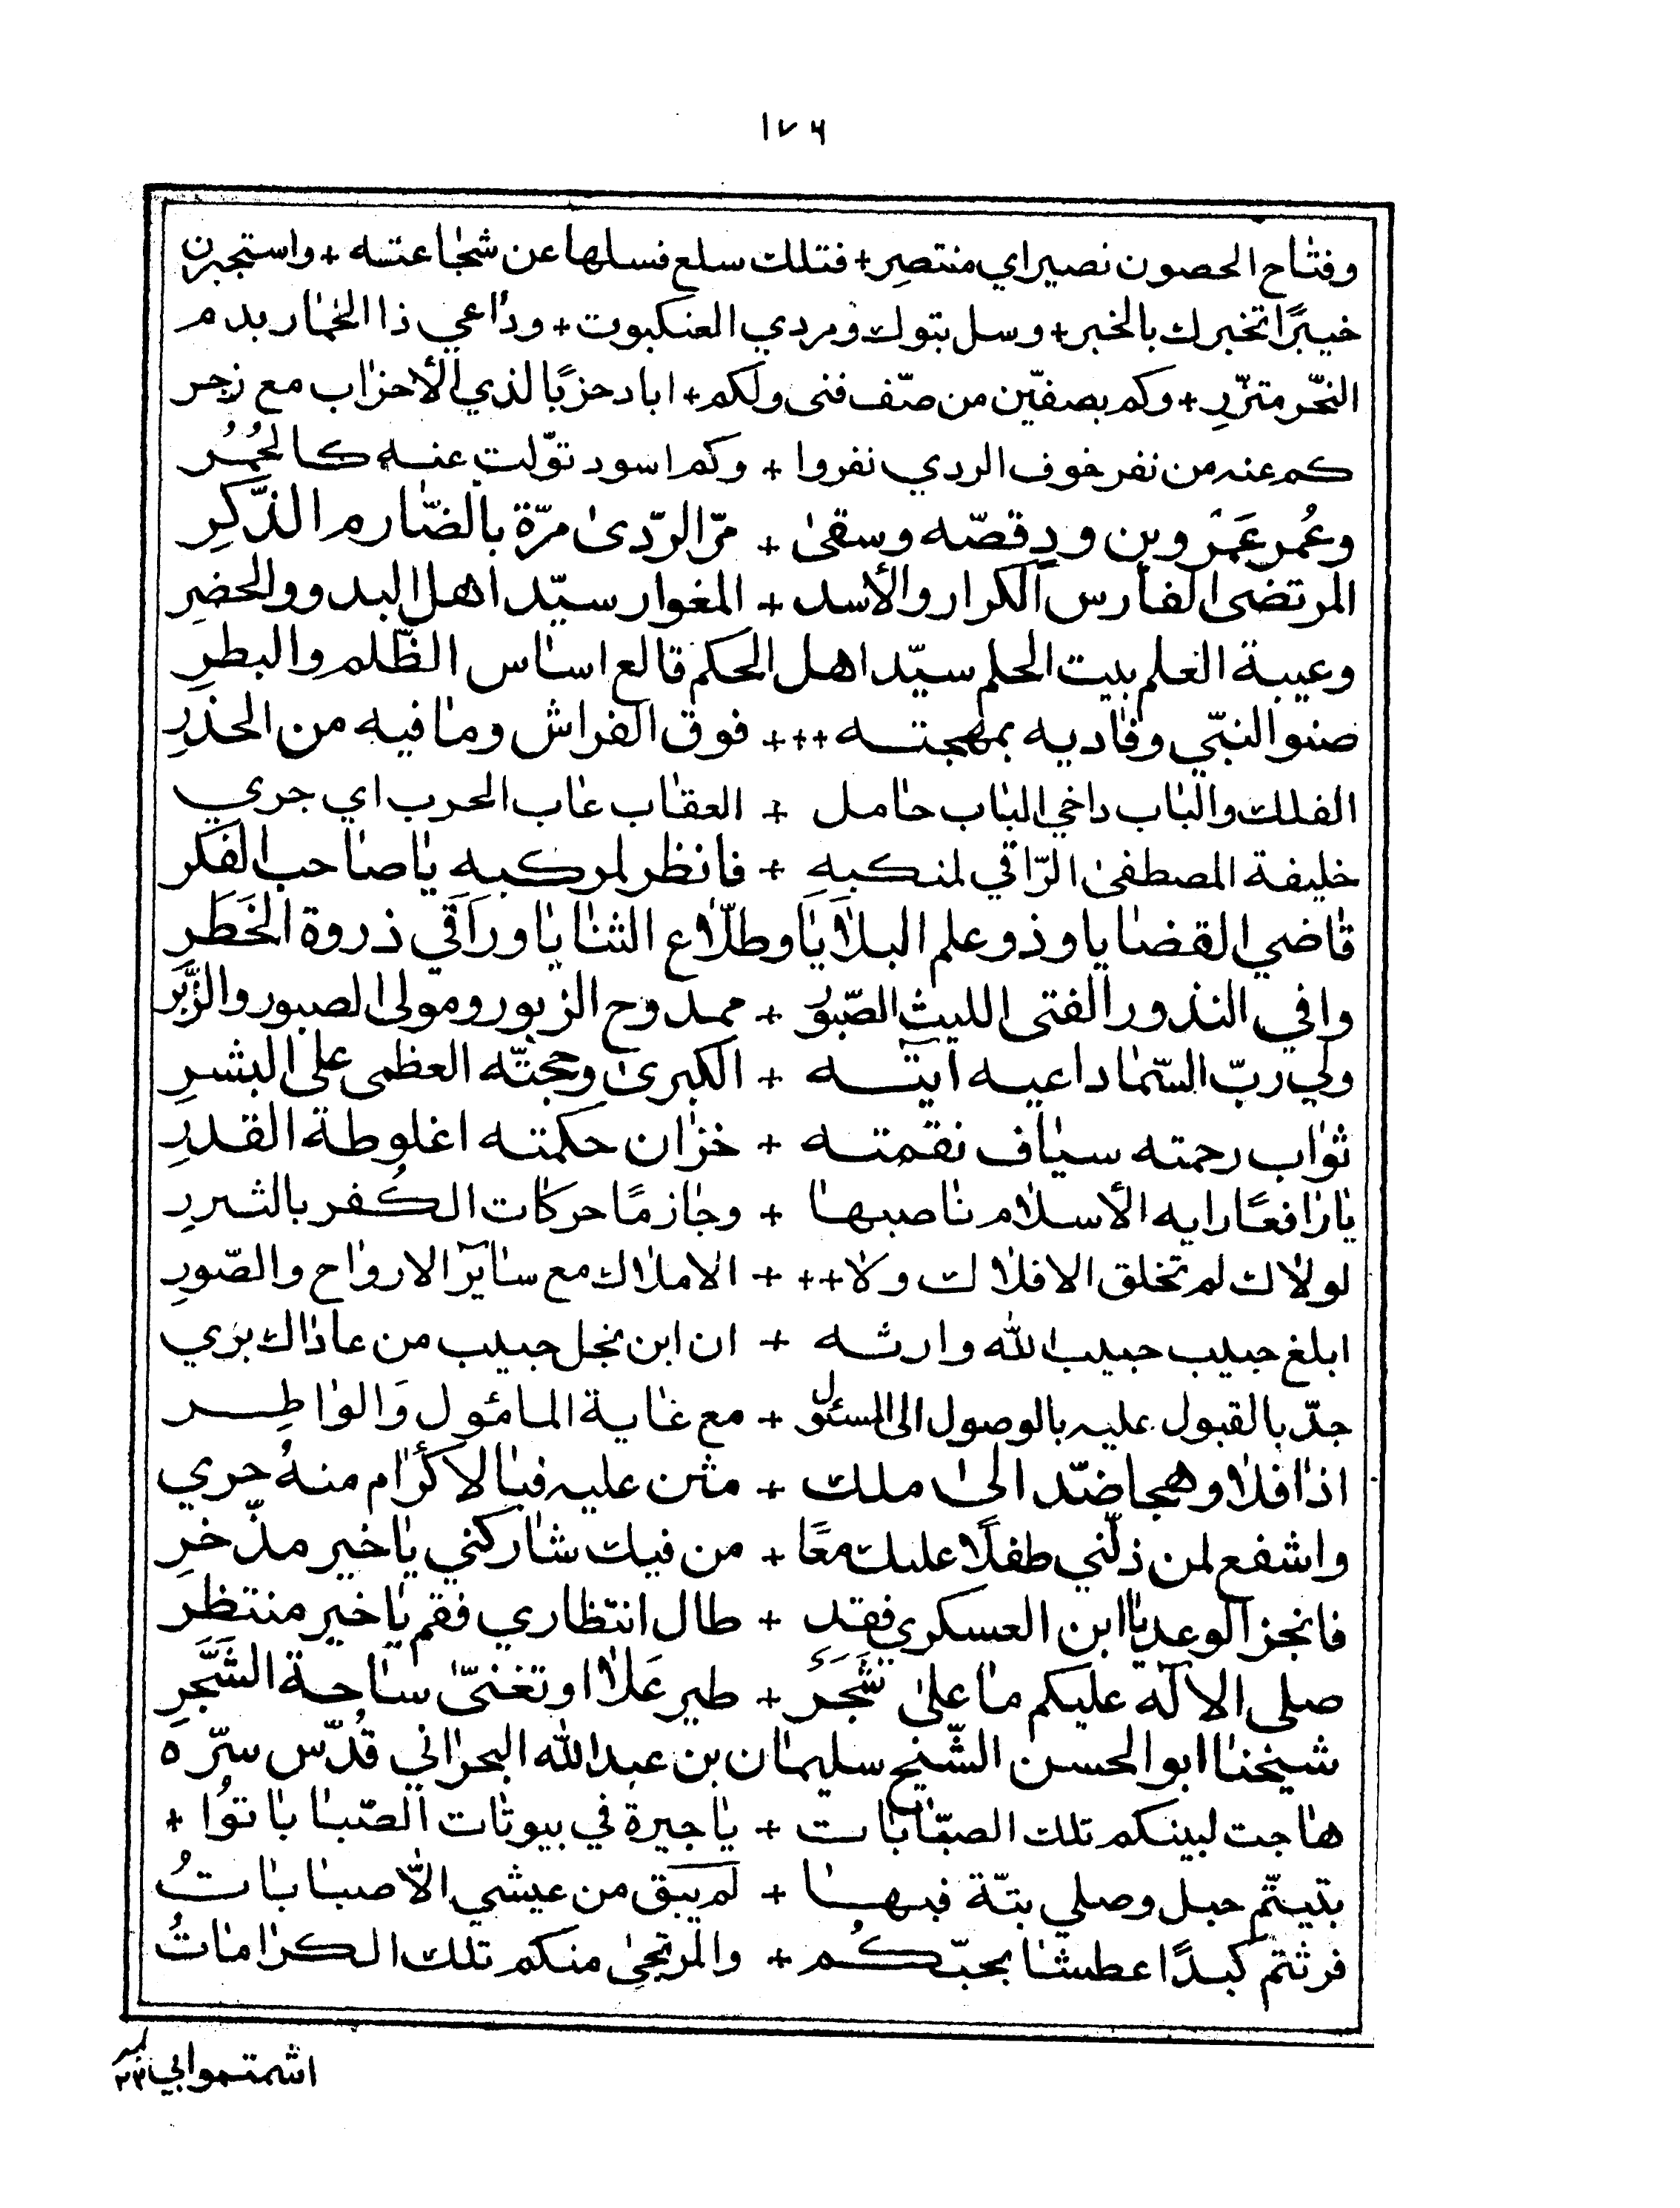 ١٧٦
وفتاح الحصون نصير اي منتصرِ + فتلك سلع فسلها عن شجاعته + واستجبرن
خيبرًا تخبرك بالخبر + وسل بتوك ومردي العنكبوت + وداعي ذا الخمار بدم
النحّر متزّرِ + وكم بصفّين من صفّ فنى ولكم + اباد حزبًا لذي الأحزاب مع زجر
كم عنه من نفر خوف الردي نفروا + وكم اسود تولّت عنه كالحُمُر
وعُمر عَمَرْ وبن ودِ قصّه وسقىٰ + مرّ الرّدىٰ مرّة بالصّارم الذّكرِ
المرتضى الفارس الكرار والأسد + المغوار سيّد اهل البدو والحضرِ
وعيبة العلم بيت الحلم سيّد اهل الحكم قالع اساس الظّلم والبطرِ
صنو النبّي وفاديه بمهجته +++ فوق الفراش وما فيه من الحذرِ
الفلك والباب داخي الباب حامل + العقاب عاب الحرب اي جري
خليفة المصطفىٰ الرّاقي لمنكبهِ + فانظر لمركبه يا صاحب الفكر
قاضي القضايا وذو علم البلايا وطلّاع الثنايا وراقي ذروة الخَطَرِ
وافي النذور الفتى الليث الصّبوُر + ممدوح الزبور ومولى الصبور والزُّبَر
ولي ربّ السّما داعيه ايته + الكبرىٰ وحجّته العظمى على البشرِ
ثواب رحمته سياف نقمته + خزان حكمته اغلوطة القدرِ
يا رافعًا رايه الأسلام ناصبها + وجازمًا حركات الكُفر بالشررِ
لولاك لم تخلق الافلاك ولا +++ الاملاك مع سائر الارواح والصّورِ
ابلغ حبيب حبيب الله وارثه + ان ابن نجل حبيب من عاذاك بري
جدّ بالقبول عليه بالوصول الى المسئول + مع غاية المامٔول وَالواطِر
اذا فلا وهجا ضدّ الىٰ ملك + مثن عليه فبالاكرام منهُ حري
واشفع لمن ذلّني طفلًا عليك معًا + من فيك شاركني يا خير مدّخرِ
فانجز الوعد يا ابن العسكري فقد + طال انتظاري فقم يا خير منتظر
صلى الاله عليكم ما علىٰ شَجَرِ + طير عَلا او تغنّىٰ ساحة الشَّجَرِ
شيخنا ابو الحسن الشّيخ سليمان بن عبد الله البحراني قُدّس سرّه
هاجت لبينكم تلك الصبّابات + يا جيرة في بيوتات الصّبا باتوُا +
بتيتّم حبل وصلي بتّة فبها + لم يبق من عيشي الّا صبابات
فرثتم كبدًا عطشا بحبّكُم + والمرتجىٰ منكم تلك الكراماتُ
اشمتموابي